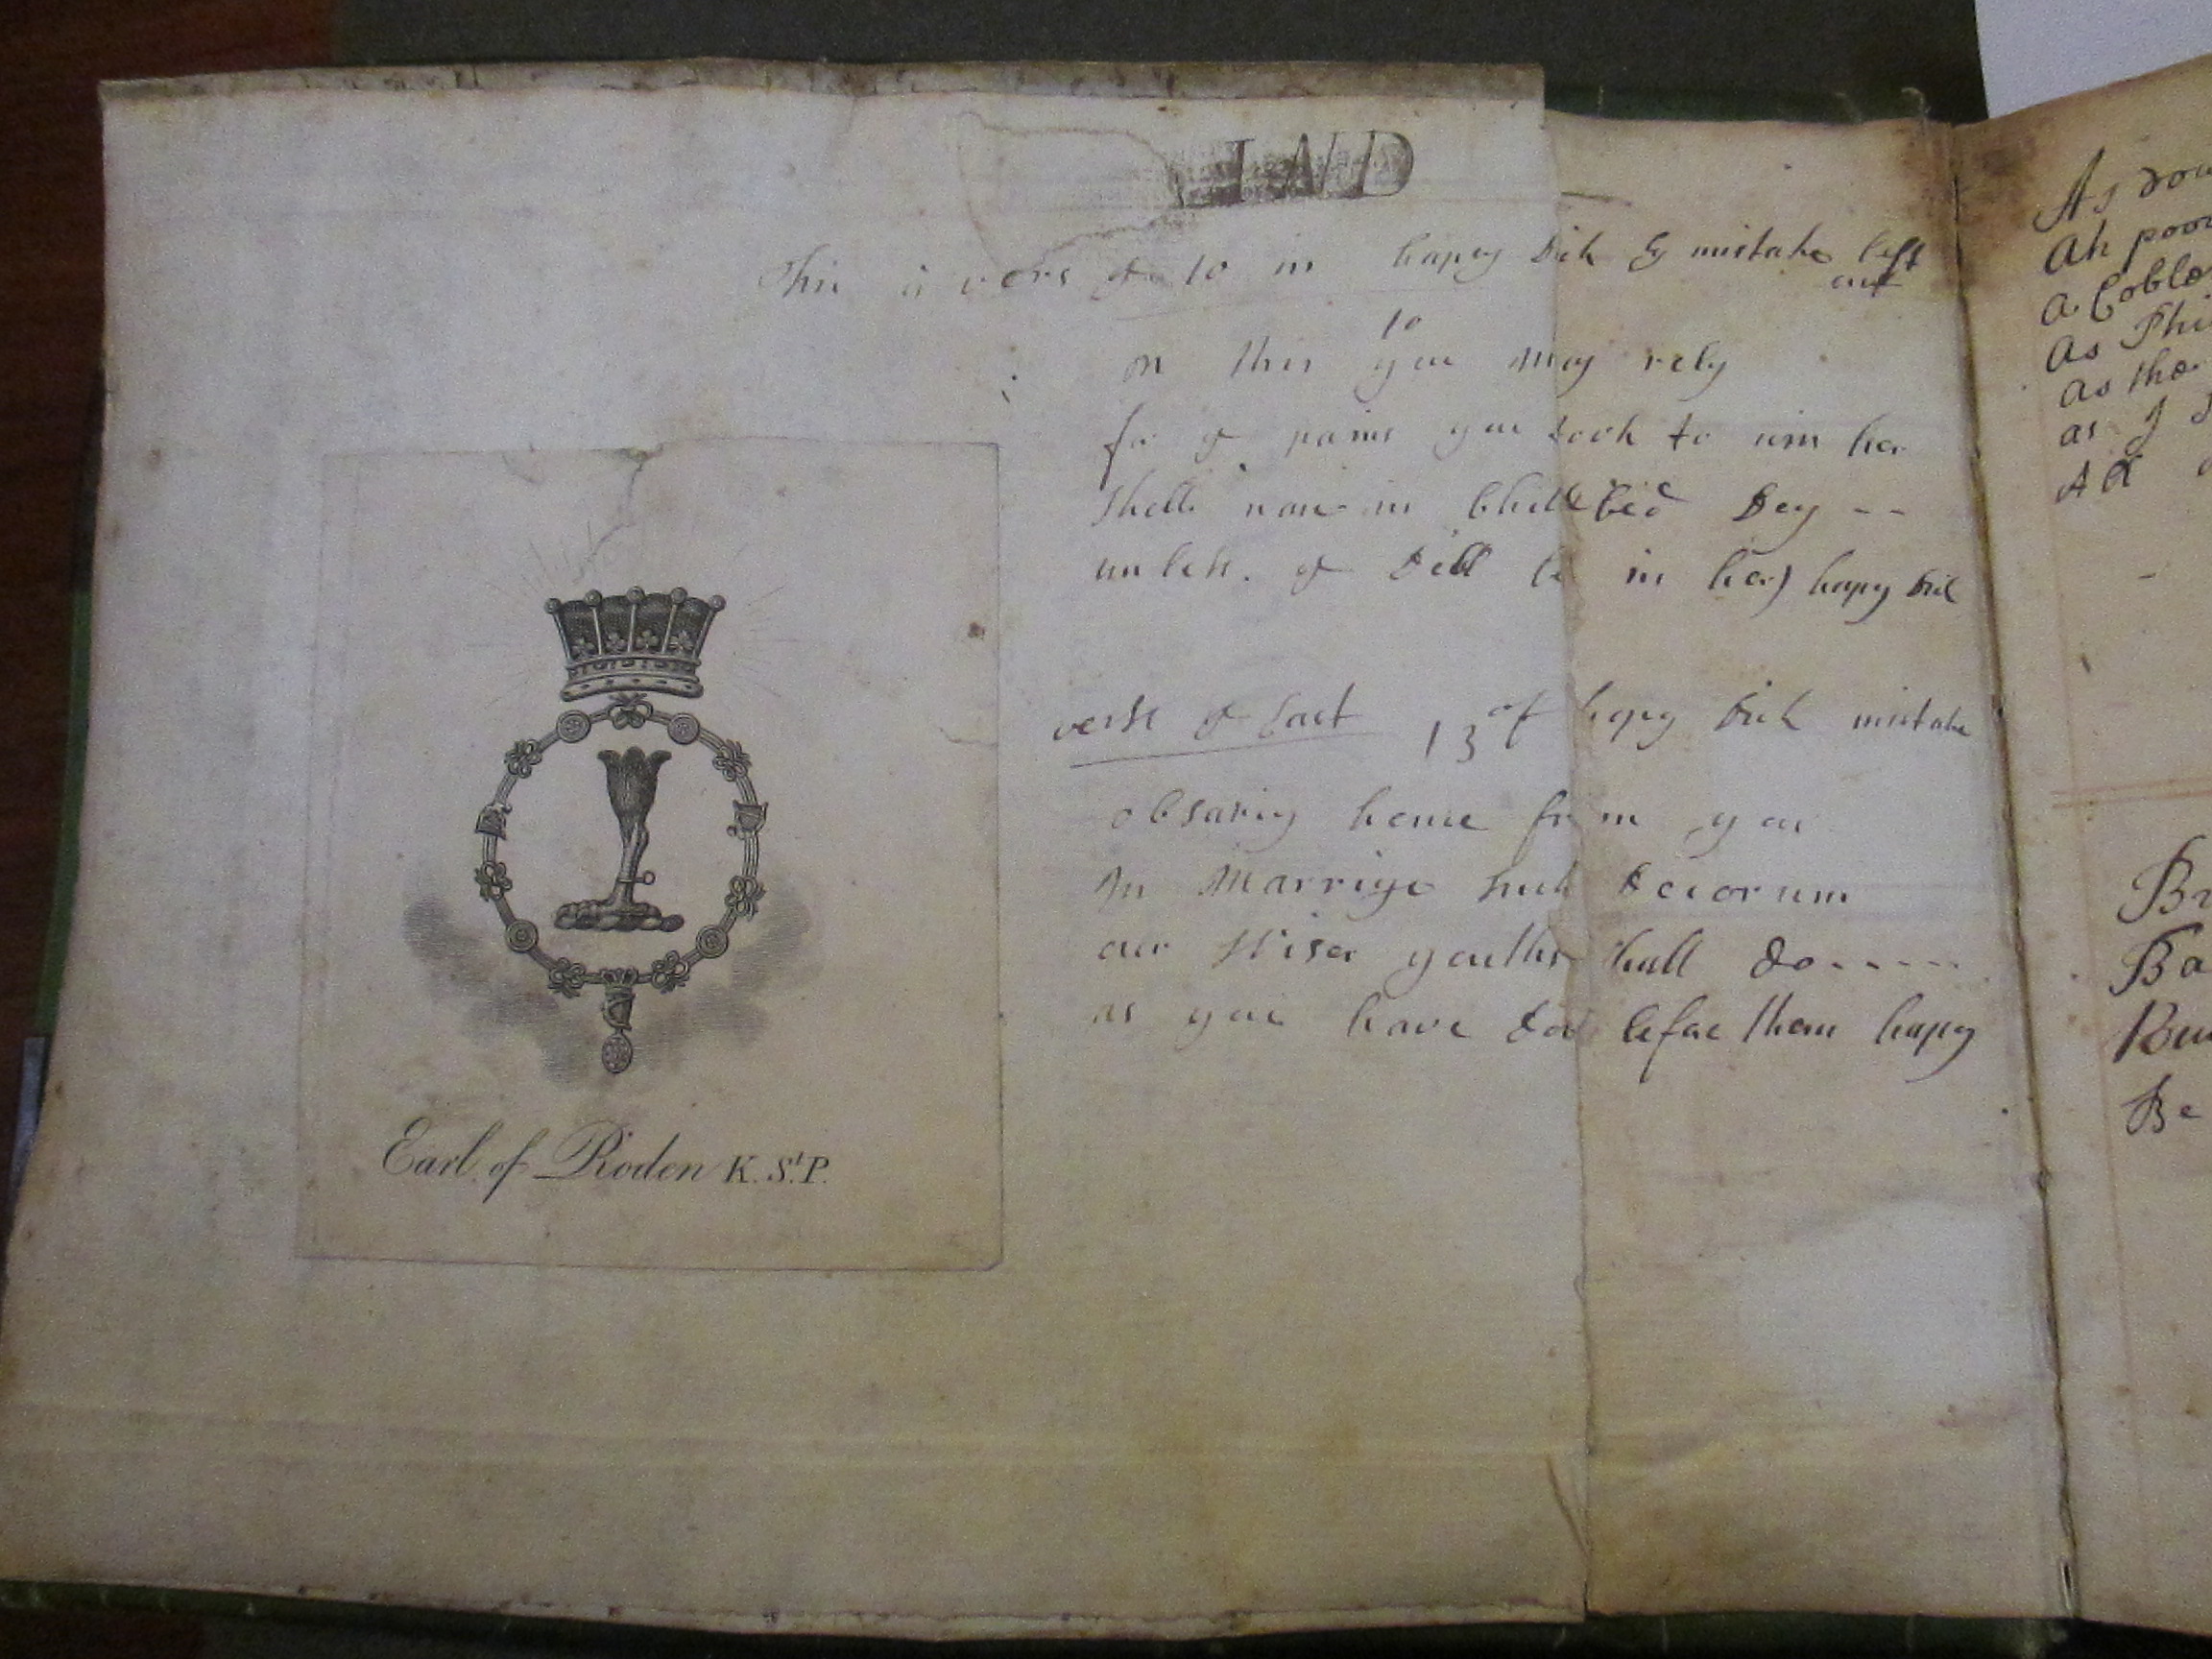 IND
This is vers ye 10 in hapy Dick by mistake left
out
10
on this you may rely
for ye pains you took to win her
Shell non in Chilld bed Dey --
unless. ye Dill be in her) hapy Dick
verse ye Last 13 of hapy Dick mistake
obsarvig hence from you
In Marrige such Decorum
our Wiser youths shall do.....
as you have don before them hapy
Earl of Roden K. St. P.
As
Ah poor
a Coble
As Thi
as the
as I
All
Br
Ba
Be